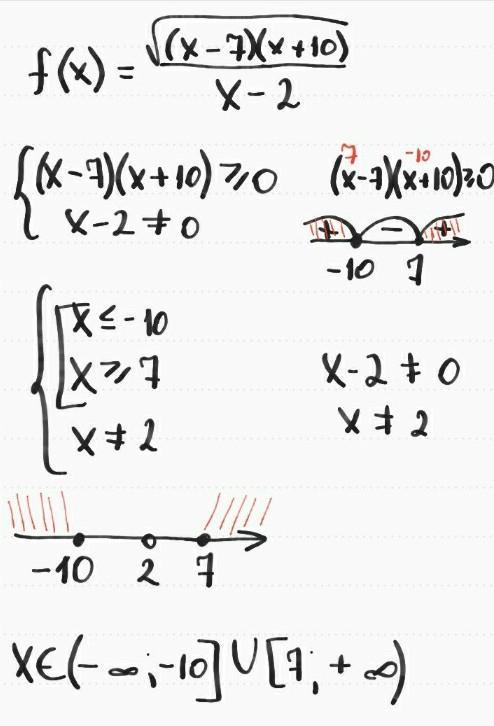 f(x) = √((x-7)(x+10)) / (x-2)
{ (x-7)(x+10) ⩾ 0
x-2 ≠ 0
7 -10
(x-7)(x+10) ⩾ 0
+ - +
-10 7
{ [ x ≤ -10
x ⩾ 7
x ≠ 2
x-2 ≠ 0
x ≠ 2
-10 2 7
x∈(-∞;-10]∪[7;+∞)